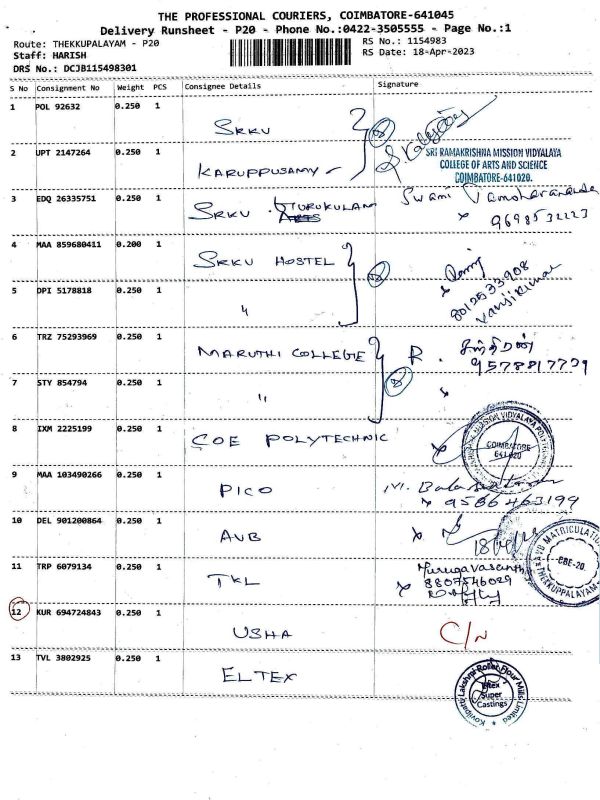 THE PROFESSIONAL COURIERS, COIMBATORE-641045
Delivery Runsheet - P20 - Phone No.:0422-3505555 - Page No.:1
Route: THEKKUPALAYAM - P20
RS No.: 1154983
Staff: HARISH
RS Date: 18-Apr-2023
DRS No.: DCJB115498301
S No Consignment No Weight PCS Consignee Details Signature
1 POL 92632 0.250 1 SRKV
2 UPT 2147264 0.250 1 KARUPPUSAMY
SRI RAMAKRISHNA MISSION VIDYALAYA
COLLEGE OF ARTS AND SCIENCE
COIMBATORE-641020.
3 EDQ 26335751 0.250 1 SRKV GURUKULAM
ARTS
Swami
9698532223
4 MAA 859680411 0.200 1 SRKV HOSTEL
5 DPI 5178818 0.250 1 "
8012533908
6 TRZ 75293969 0.250 1 MARUTHI COLLEGE R.
9578817729
7 STY 854794 0.250 1 "
8 IXM 2225199 0.250 1 COE POLYTECHNIC
COIMBATORE
641020
9 MAA 103490266 0.250 1 PICO M.
9586463199
10 DEL 901200864 0.250 1 AVB
11 TRP 6079134 0.250 1 TKL Murugavasanth
8807546029
AVB MATRICULATION
CBE-20.
THEKKUPALAYAM
12 KUR 694724843 0.250 1 USHA C/N
13 TVL 3802925 0.250 1 ELTEX
Kovilpatti Lakshmi Roller Flour Mills Limited
Eltex
Super
Castings